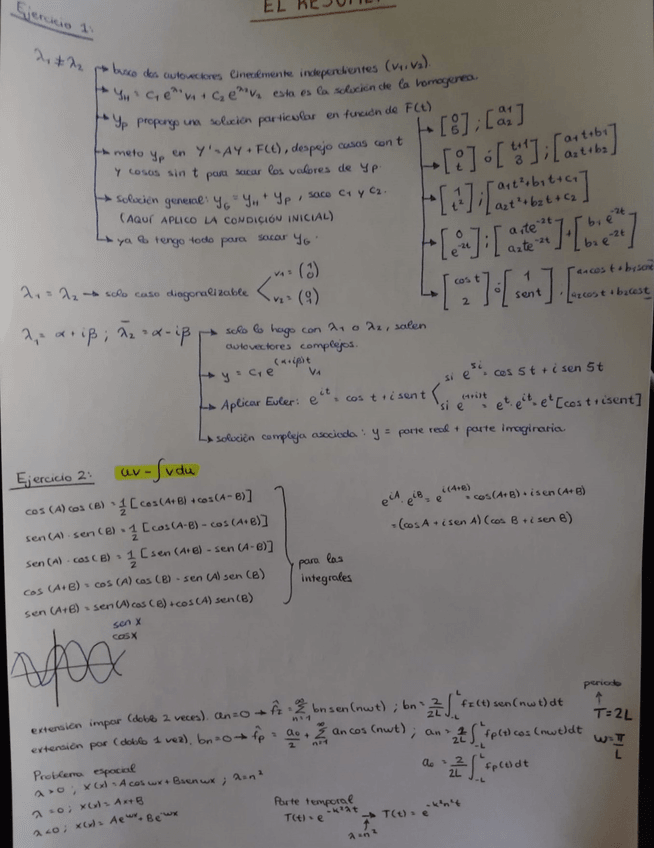 EL RESUMEN
Ejercicio 1:
λ₁ ≠ λ₂ → busco dos autovectores linealmente independientes (v₁, v₂).
→ y_H = C₁ e^{λ₁} v₁ + C₂ e^{λ₂} v₂ esta es la solución de la homogenea.
→ y_p propongo una solución particular en función de F(t)
→ [0 5] ; [a₁ a₂]
→ meto y_p en Y' = AY + F(t), despejo cosas con t
y cosas sin t para sacar los valores de y_p
→ [0 t] ó [t+1 3] ; [a₁t+b₁ a₂t+b₂]
→ solución general: y_G = y_H + y_p, saco C₁ y C₂.
(AQUÍ APLICO LA CONDICIÓN INICIAL)
→ [1 t²] ; [a₁t²+b₁t+c₁ a₂t²+b₂t+c₂]
→ ya lo tengo todo para sacar y_G.
→ [0 e^{-2t}] ; [a₁te^{-2t} a₂te^{-2t}] + [b₁e^{-2t} b₂e^{-2t}]
→ [cos t 2] ó [1 sen t] . [a₁cos t + b₁sen t a₂cos t + b₂cos t]
λ₁ = λ₂ → solo caso diagonalizable < v₁ = (1 0)
v₂ = (0 1)
λ₁ = α + iβ ; λ̄₂ = α - iβ → solo lo hago con λ₁ o λ₂, salen
autovectores complejos.
→ y = C₁ e^{(α+iβ)t} v₁
→ Aplicar Euler: e^{it} = cos t + i sen t < si e^{5i} = cos 5t + i sen 5t
si e^{(1+i)t} = e^t · e^{it} = e^t [cos t + i sen t]
→ solución compleja asociada: y = parte real + parte imaginaria
Ejercicio 2: uv - ∫ v du
cos (A) cos (B) = 1/2 [cos(A+B) + cos(A-B)]
sen (A) · sen (B) = 1/2 [cos(A-B) - cos(A+B)]
sen (A) · cos (B) = 1/2 [sen (A+B) - sen (A-B)]
cos (A+B) = cos (A) cos (B) - sen (A) sen (B)
sen (A+B) = sen (A) cos (B) + cos (A) sen (B)
para las
integrales
e^{iA} · e^{iB} = e^{i(A+B)} = cos(A+B) + i sen (A+B)
= (cos A + i sen A) (cos B + i sen B)
sen x
cos x
extensión impar (doblo 2 veces). an=0 → f̂_I = Σ_{n=1}^{∞} bn sen (nωt) ; bn = 2/2L ∫_{-L}^{L} f_I(t) sen (nωt) dt
extensión par (doblo 1 vez). bn=0 → f̂_p = a₀/2 + Σ_{n=1}^{∞} an cos (nωt) ; an = 2/2L ∫_{-L}^{L} fp(t) cos (nωt) dt
a₀ = 2/2L ∫_{-L}^{L} fp(t) dt
periodo
↑
T = 2L
ω = π/L
Problema espacial
λ > 0 ; X(x) = A cos ωx + B sen ωx ; λ = n²
λ = 0 ; X(x) = Ax + B
λ < 0 ; X(x) = Ae^{ωx} + Be^{-ωx}
Parte temporal
T(t) = e^{-k²λt} → T(t) = e^{-k²n²t}
↑
λ = n²